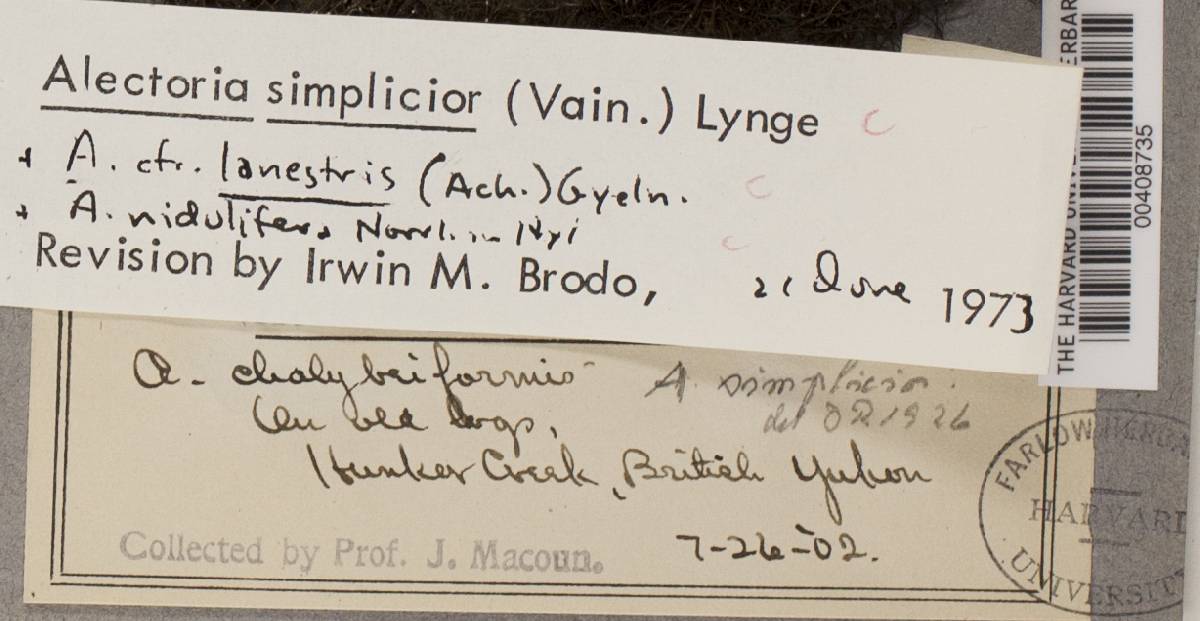 Alectoria simplicior (Vain.) Lynge C
+ A. cfr. lanestris (Ach.) Gyeln. C
+ A. nidulifera Norrl. in Nyl C
Revision by Irwin M. Brodo, 21 June 1973
A. chalybeiformis A. simplicior.
On old logs, det DR 1926
Hunker Creek, British Yukon
Collected by Prof. J. Macoun. 7-26-02.
THE HARVARD
00408735
FARLOW
HARVARD
UNIVERSITY